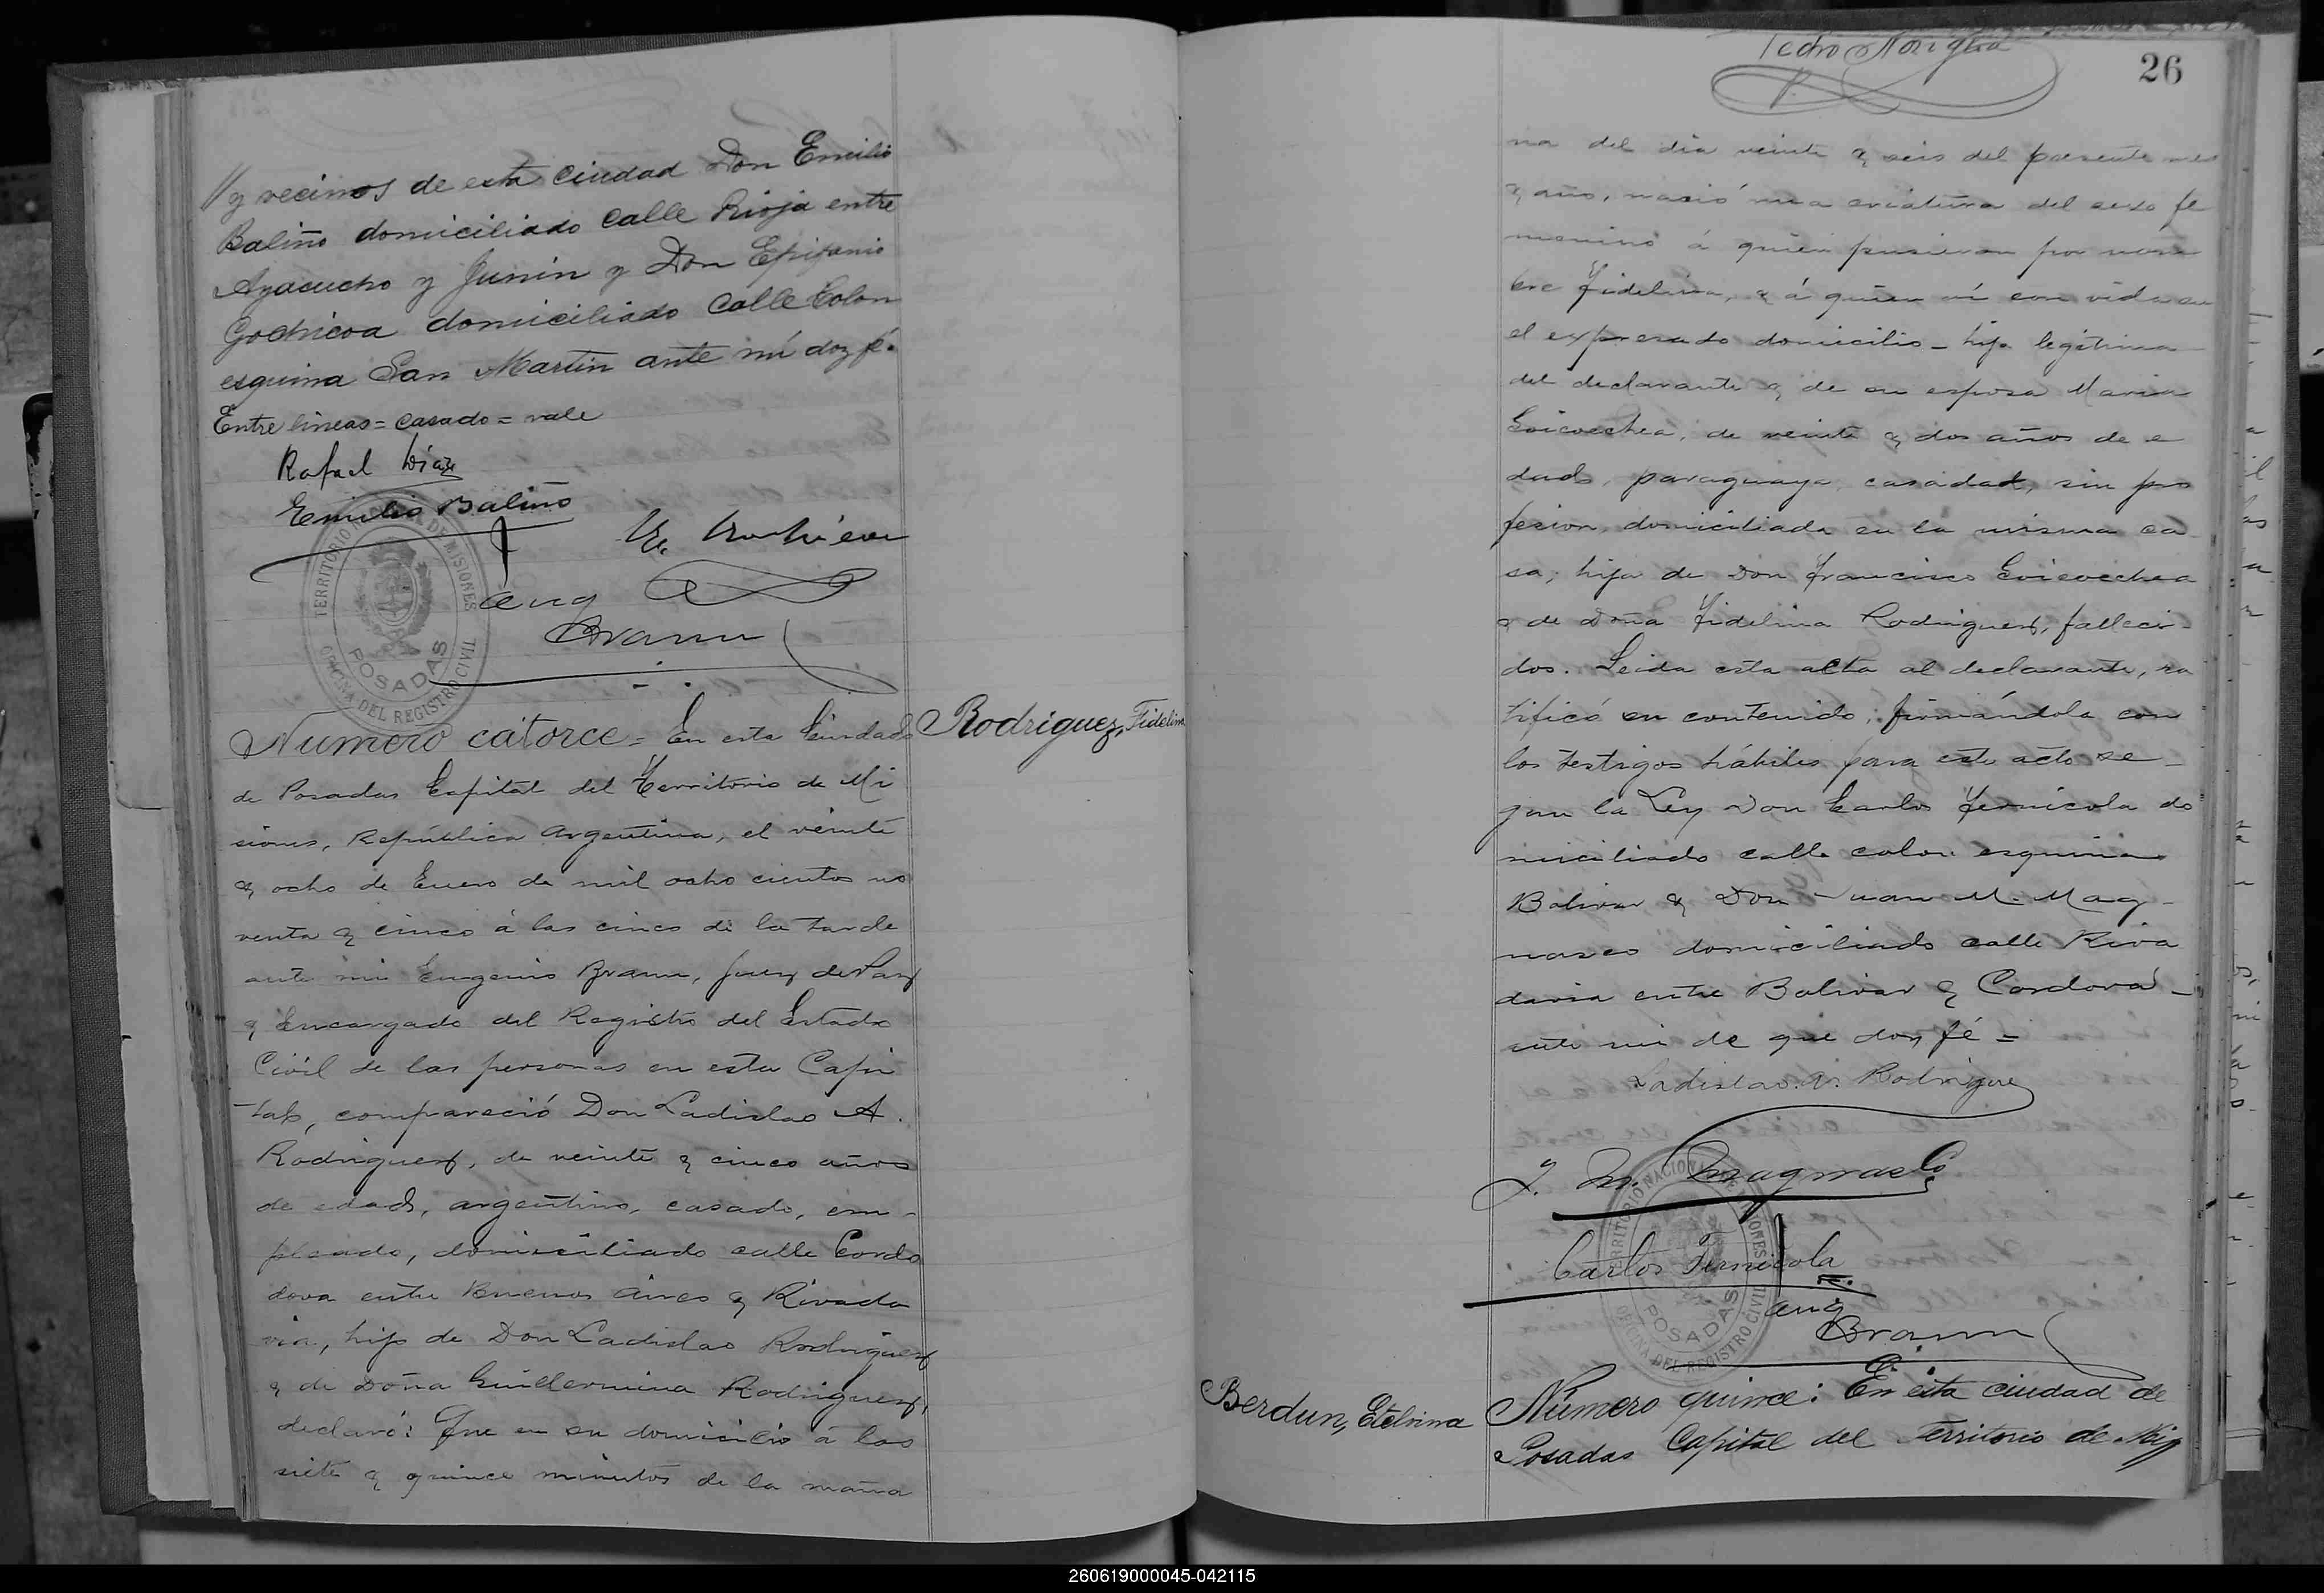 // y vecinos de esta Ciudad Don Emilio
Baliño domiciliado calle Rioja entre
Ayacucho y Junin y Don Epifanio
Gochicoa domiciliado Calle Colon
esquina San Martin ante mi doy fé.
Entre lineas = casado = vale
Rafael Diaz
Emilio Baliño
Eug
Braun
TERRITORIO NACIONAL DE MISIONES
POSADAS
OFICINA DEL REGISTRO CIVIL
Rodriguez, Fidelina
Numero catorce = En esta Ciudad
de Posadas Capital del Territorio de Mi
siones, República Argentina, el veinte
y ocho de Enero de mil ocho cientos no
venta y cinco á las cinco de la tarde
ante mi Eugenio Braun, Juez de Paz
y Encargado del Registro del Estado
Civil de las personas en esta Capi
tal, compareció Don Ladislao A.
Rodriguez, de veinte y cinco años
de edad, argentino, casado, em-
pleado, domiciliado calle Cordo
dova entre Buenos Aires y Rivada
via, hijo de Don Ladislao Rodriguez
y de Doña Guillermina Rodriguez,
declaró: Que en su domicilio á las
siete y quince minutos de la maña
Pedro Noriega
26
na del dia veinte y seis del presente mes
y año, nació una criatura del sexo fe
menino á quien pusieron por nom
bre Fidelina, y á quien ví con vida en
el expresado domicilio - hija legitima
del declarante y de su esposa Maria
Goicoechea, de veinte y dos años de e
dad, paraguaya, casada, sin pro
fesion, domiciliada en la misma ca
sa; hija de Don Francisco Goicoechea
y de Doña Fidelina Rodriguez, falleci-
dos. Leida esta acta al declarante, ra
tificó su contenido, firmándola con
los testigos hábiles para este acto se-
gun la Ley Don Carlos Fernicola do
miciliado calle colon esquina
Bolivar y Don Juan M. Mag-
nasco domiciliado calle Riva
davia entre Bolivar y Cordova -
ante mi de que doy fé =
Ladislao A. Rodriguez
J. M. Magnasco
Carlos Fernicola
Eug
Braun
TERRITORIO NACIONAL DE MISIONES
POSADAS
OFICINA DEL REGISTRO CIVIL
Berdun, Etelvina
Numero quince: En esta ciudad de
Posadas Capital del Territorio de Mis
260619000045-042115